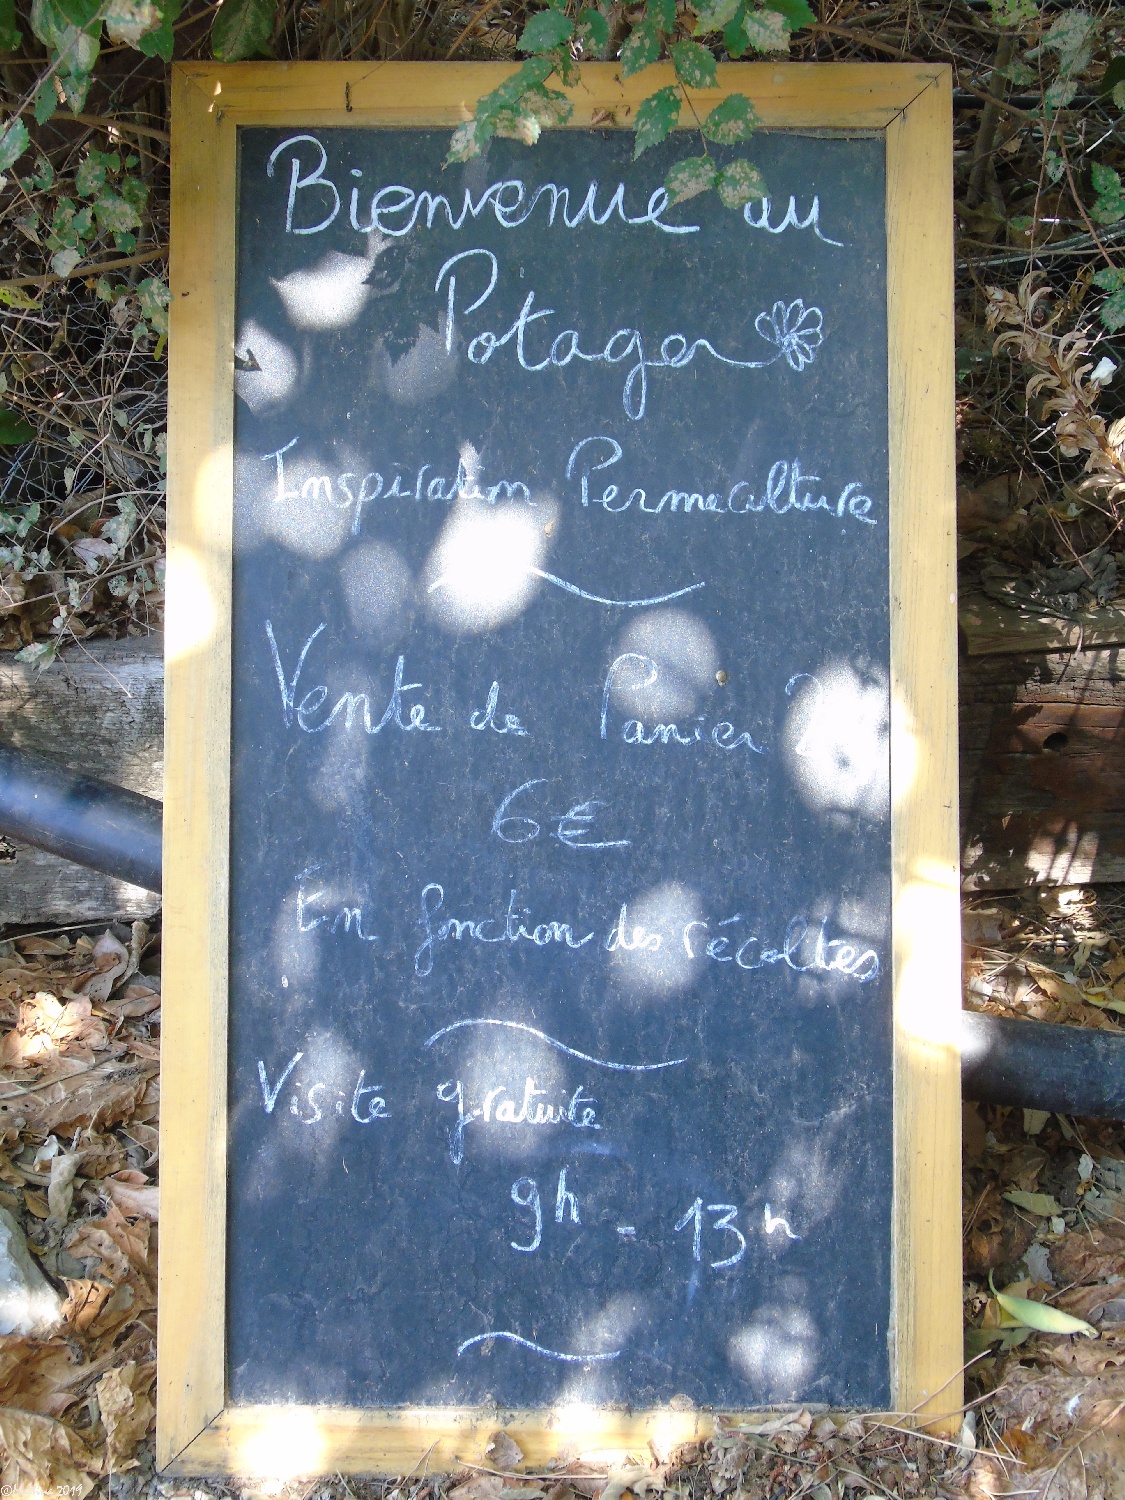 Bienvenue au
Potager
Inspiration Permaculture
Vente de Panier
6€
En fonction des récoltes
Visite gratuite
9h - 13h
2019